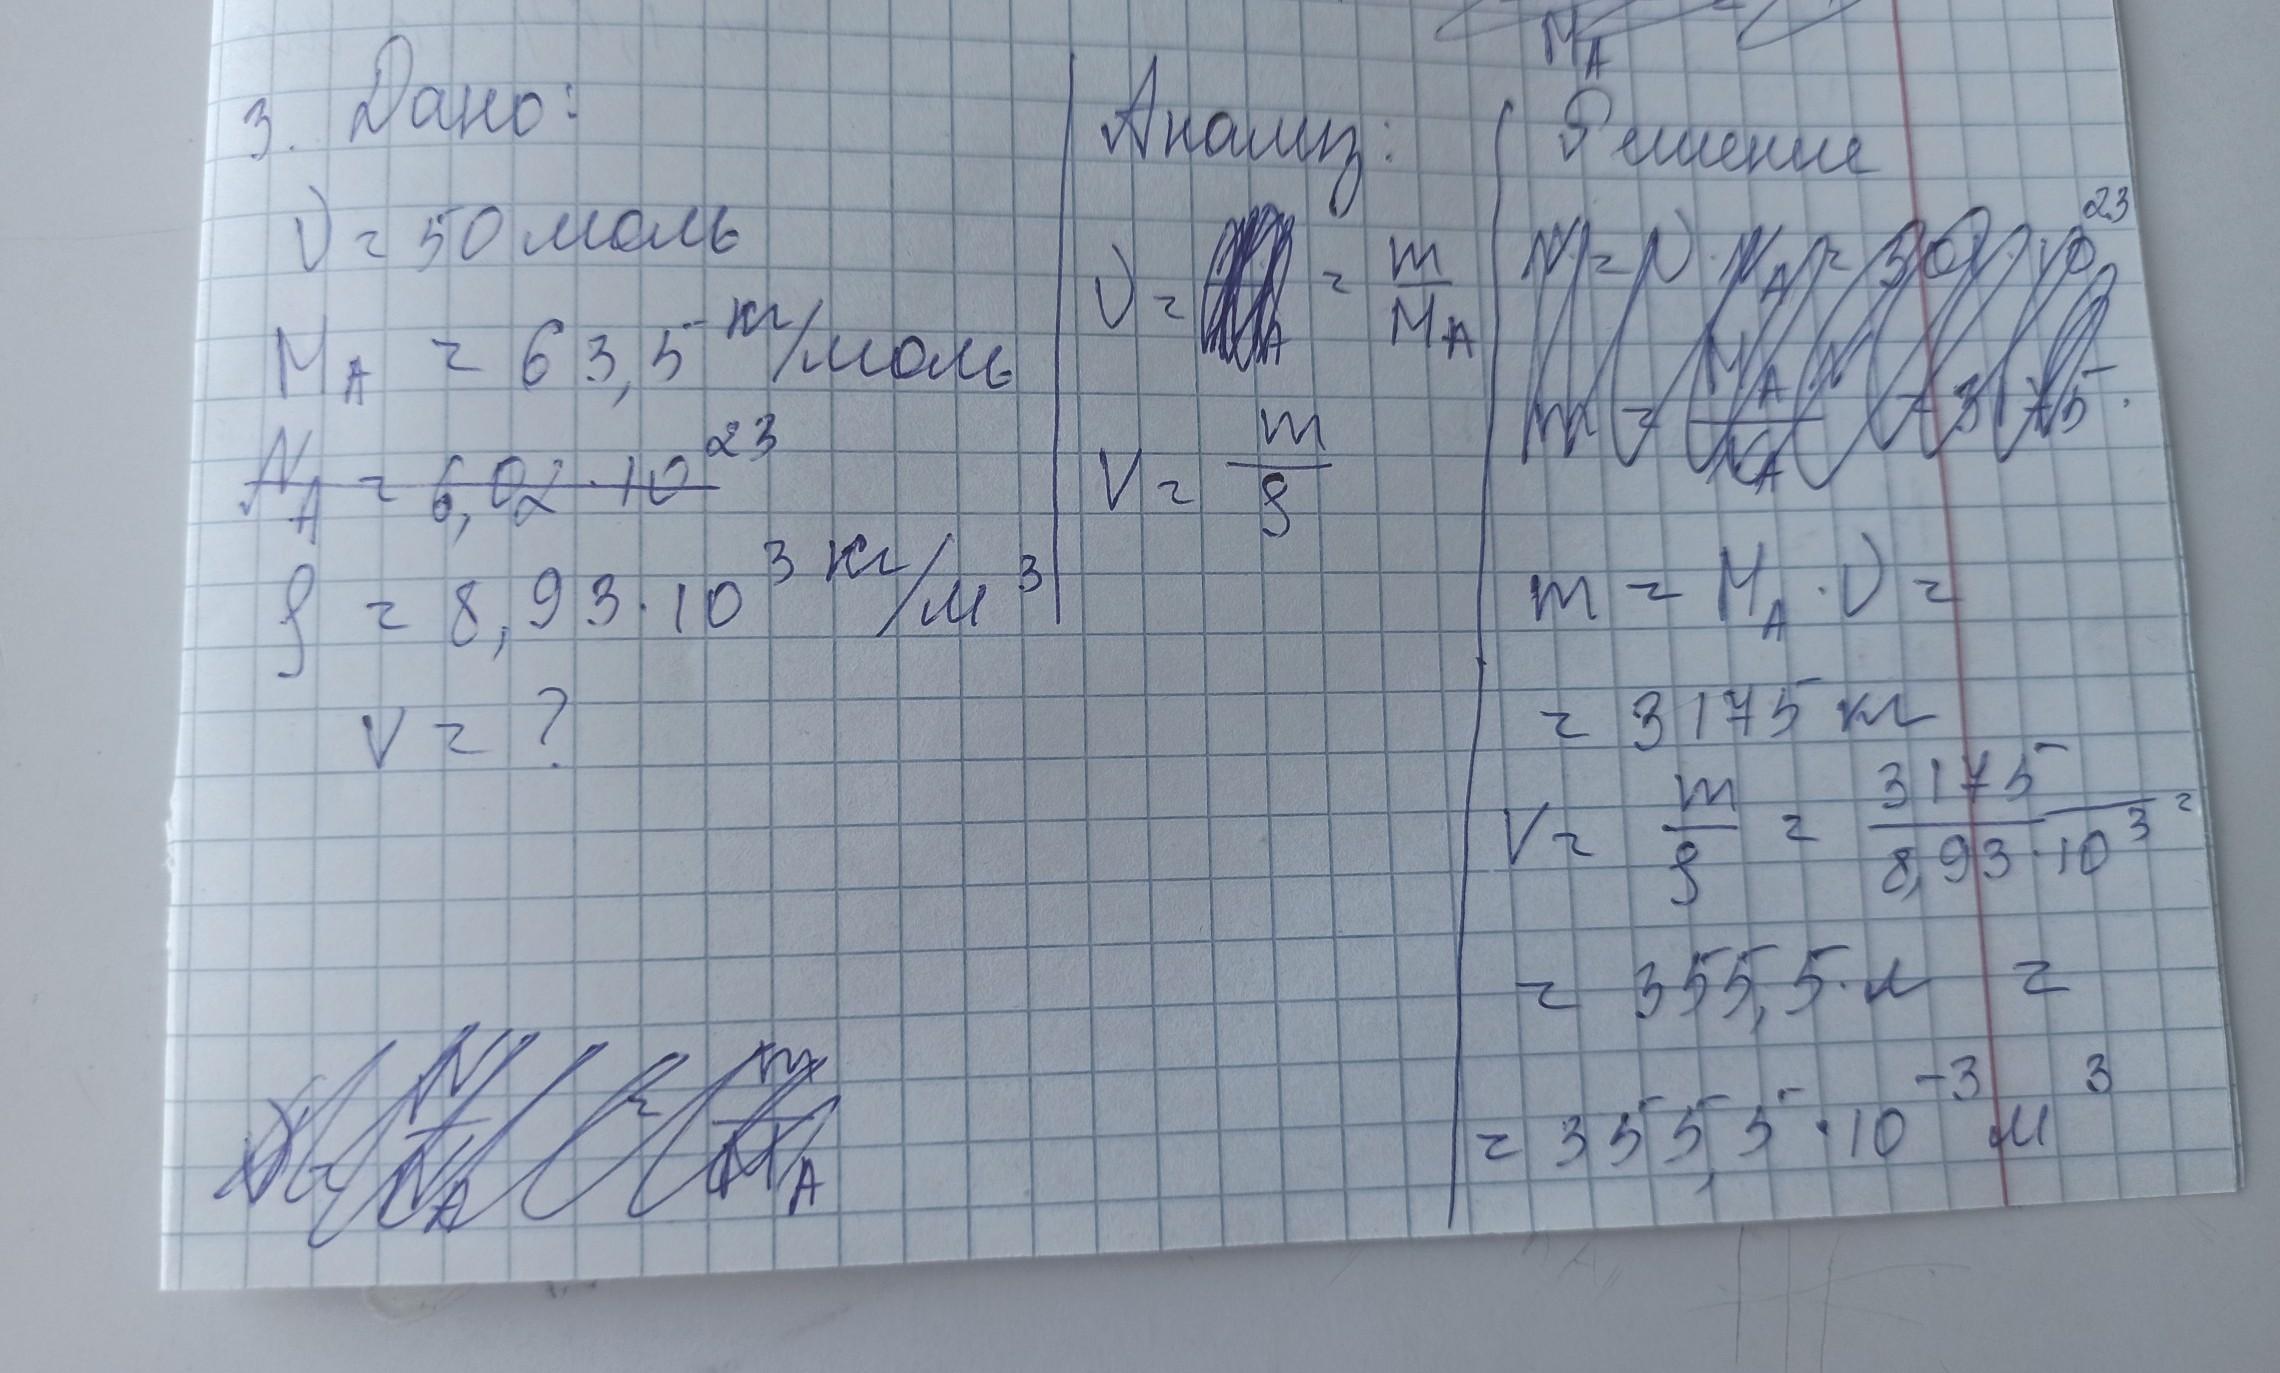 M_A
3. Дано:
ν = 50 моль
M_A = 63,5 кг/моль
N_A = 6,02 · 10²³
ρ = 8,93 · 10³ кг/м³
V = ?
ν = N/N_A = m/M_A
Анализ:
ν = = m/M_A
V = m/ρ
Решение
N = ν · N_A = 10²³
m = = 3175
m = M_A · ν =
= 3175 кг
V = m/ρ = 3175/8,93·10³ =
= 355,5 л =
= 355,5 · 10⁻³ м³